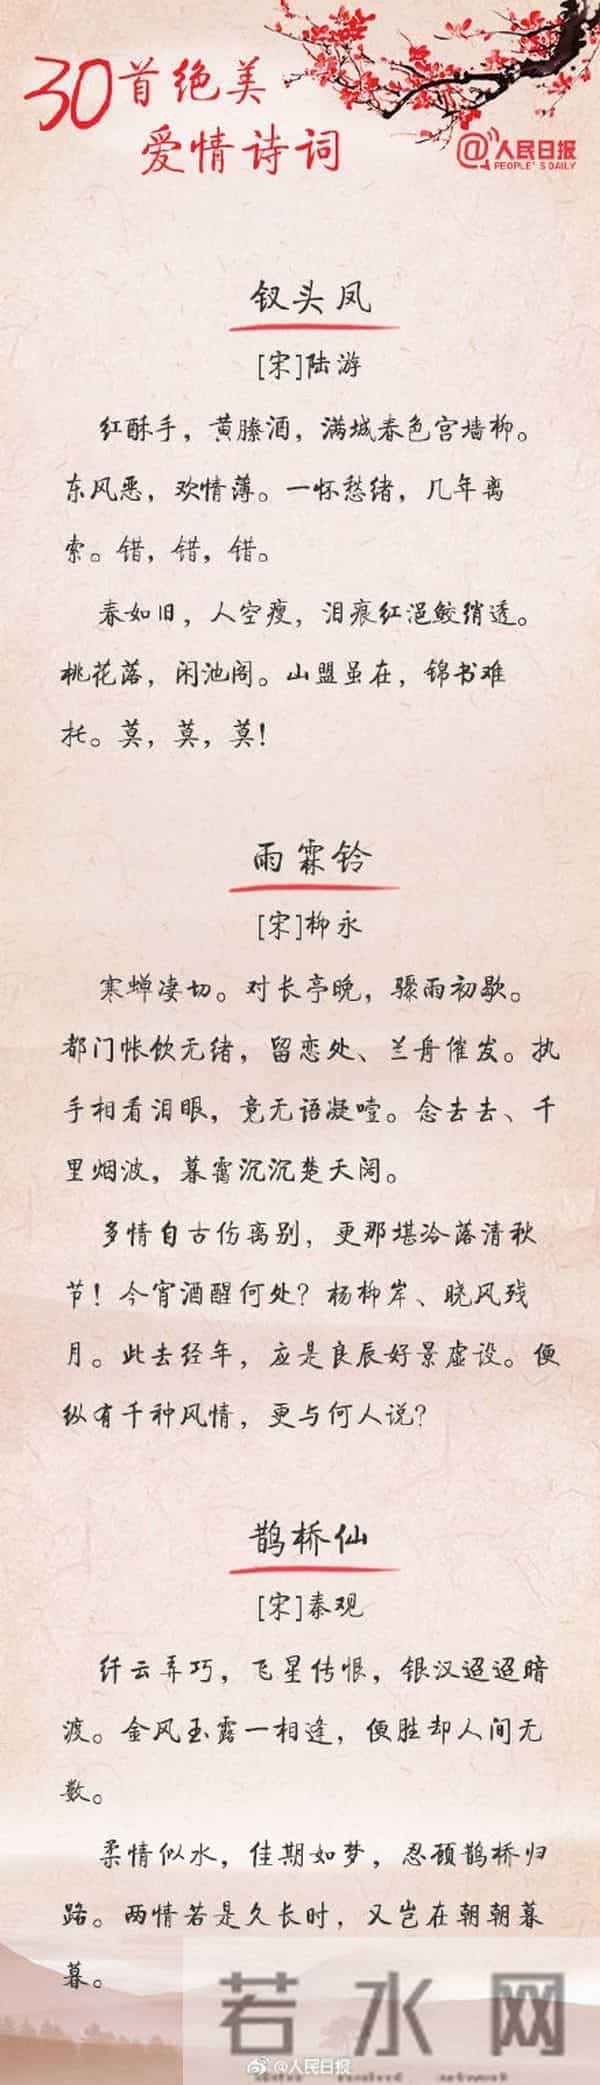 30首绝美
爱情诗词
@人民日报
PEOPLE'S DAILY
钗头凤
[宋]陆游
红酥手，黄滕酒，满城春色宫墙柳。
东风恶，欢情薄。一怀愁绪，几年离
索。错，错，错。
春如旧，人空瘦，泪痕红浥鲛绡透。
桃花落，闲池阁。山盟虽在，锦书难
托。莫，莫，莫！
雨霖铃
[宋]柳永
寒蝉凄切。对长亭晚，骤雨初歇。
都门帐饮无绪，留恋处、兰舟催发。执
手相看泪眼，竟无语凝噎。念去去、千
里烟波，暮霭沉沉楚天阔。
多情自古伤离别，更那堪冷落清秋
节！今宵酒醒何处？杨柳岸、晓风残
月。此去经年，应是良辰好景虚设。便
纵有千种风情，更与何人说？
鹊桥仙
[宋]秦观
纤云弄巧，飞星传恨，银汉迢迢暗
渡。金风玉露一相逢，便胜却人间无
数。
柔情似水，佳期如梦，忍顾鹊桥归
路。两情若是久长时，又岂在朝朝暮
暮。
若水网
@人民日报